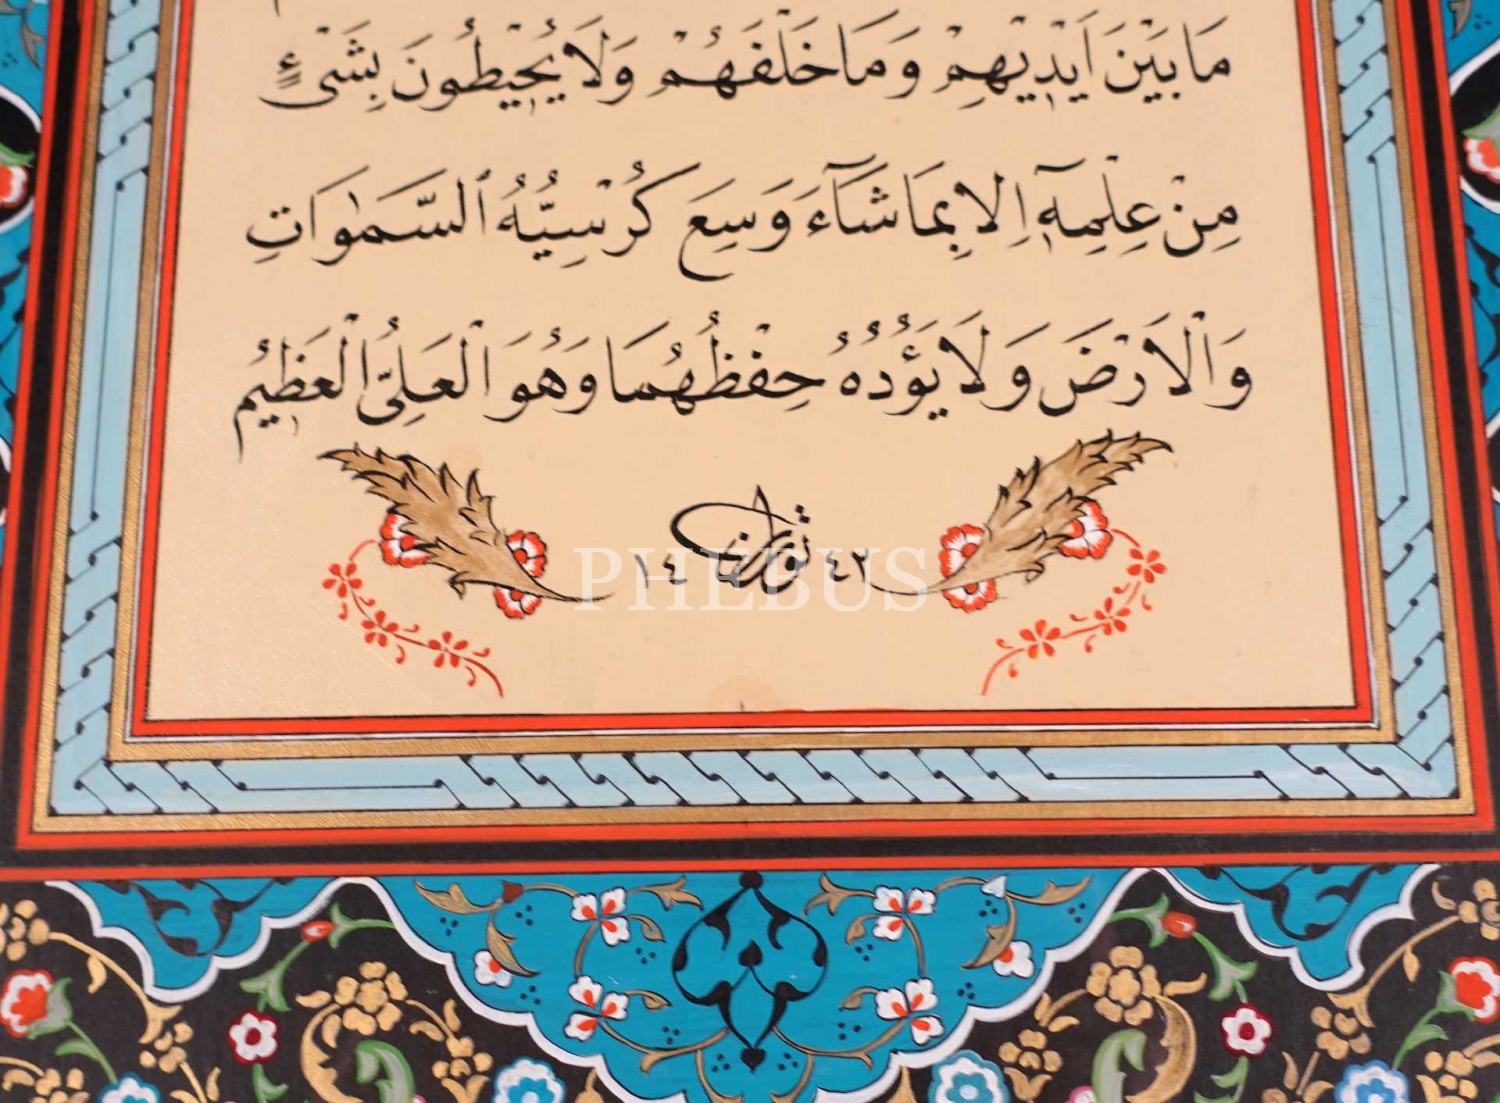 مَا بَيْنَ اَيْدِيهِمْ وَمَا خَلْفَهُمْ وَلَا يُحِيْطُونَ بِشَیْءٍ
مِنْ عِلْمِهٖٓ اِلَا بِمَا شَآءَ وَسِعَ كُرْسِيُّهُ ٱلسَّمٰوَاتِ
وَٱلْاَرْضَ وَلَا يَؤُدُهُ حِفْظُهُمَا وَهُوَ ٱلْعَلِیُّ الْعَظِيْمُ
١٤ ٤٢
PHEBUS